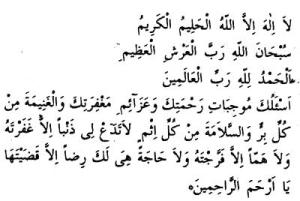 لاَ اِلٰهَ اِلاَّ اللهُ الْحَلِيمُ الْكَرِيمُ
سُبْحَانَ اللهِ رَبِّ الْعَرْشِ الْعَظِيمِ
اَلْحَمْدُ لِلّٰهِ رَبِّ الْعَالَمِينَ
اَسْئَلُكَ مُوجِبَاتِ رَحْمَتِكَ وَعَزَائِمَ مَغْفِرَتِكَ وَالْغَنِيمَةَ مِنْ
كُلِّ بِرٍّ وَالسَّلاَمَةَ مِنْ كُلِّ اِثْمٍ لاَتَدَعْ لِى ذَنْباً اِلاَّ غَفَرْتَهُ
وَلاَ هَمّاً اِلاَّ فَرَّجْتَهُ وَلاَ حَاجَةً هِىَ لَكَ رِضاً اِلاَّ قَضَيْتَهَا
يَا اَرْحَمَ الرَّاحِمِينَ